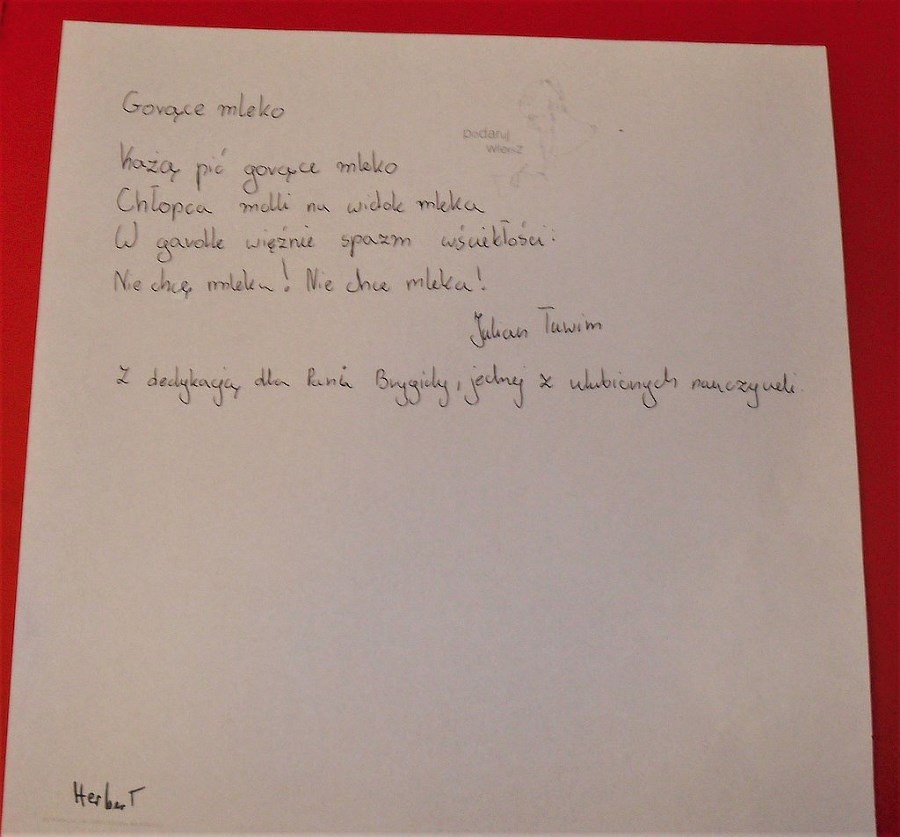 Gorące mleko
podaruj
wiersz
Każą pić gorące mleko
Chłopca mdli na widok mleka
W gardle więźnie spazm wściekłości:
Nie chcę mleka! Nie chcę mleka!
Julian Tuwim
Z dedykacją dla Pani Brygidy, jednej z ulubionych nauczycieli.
Herbert